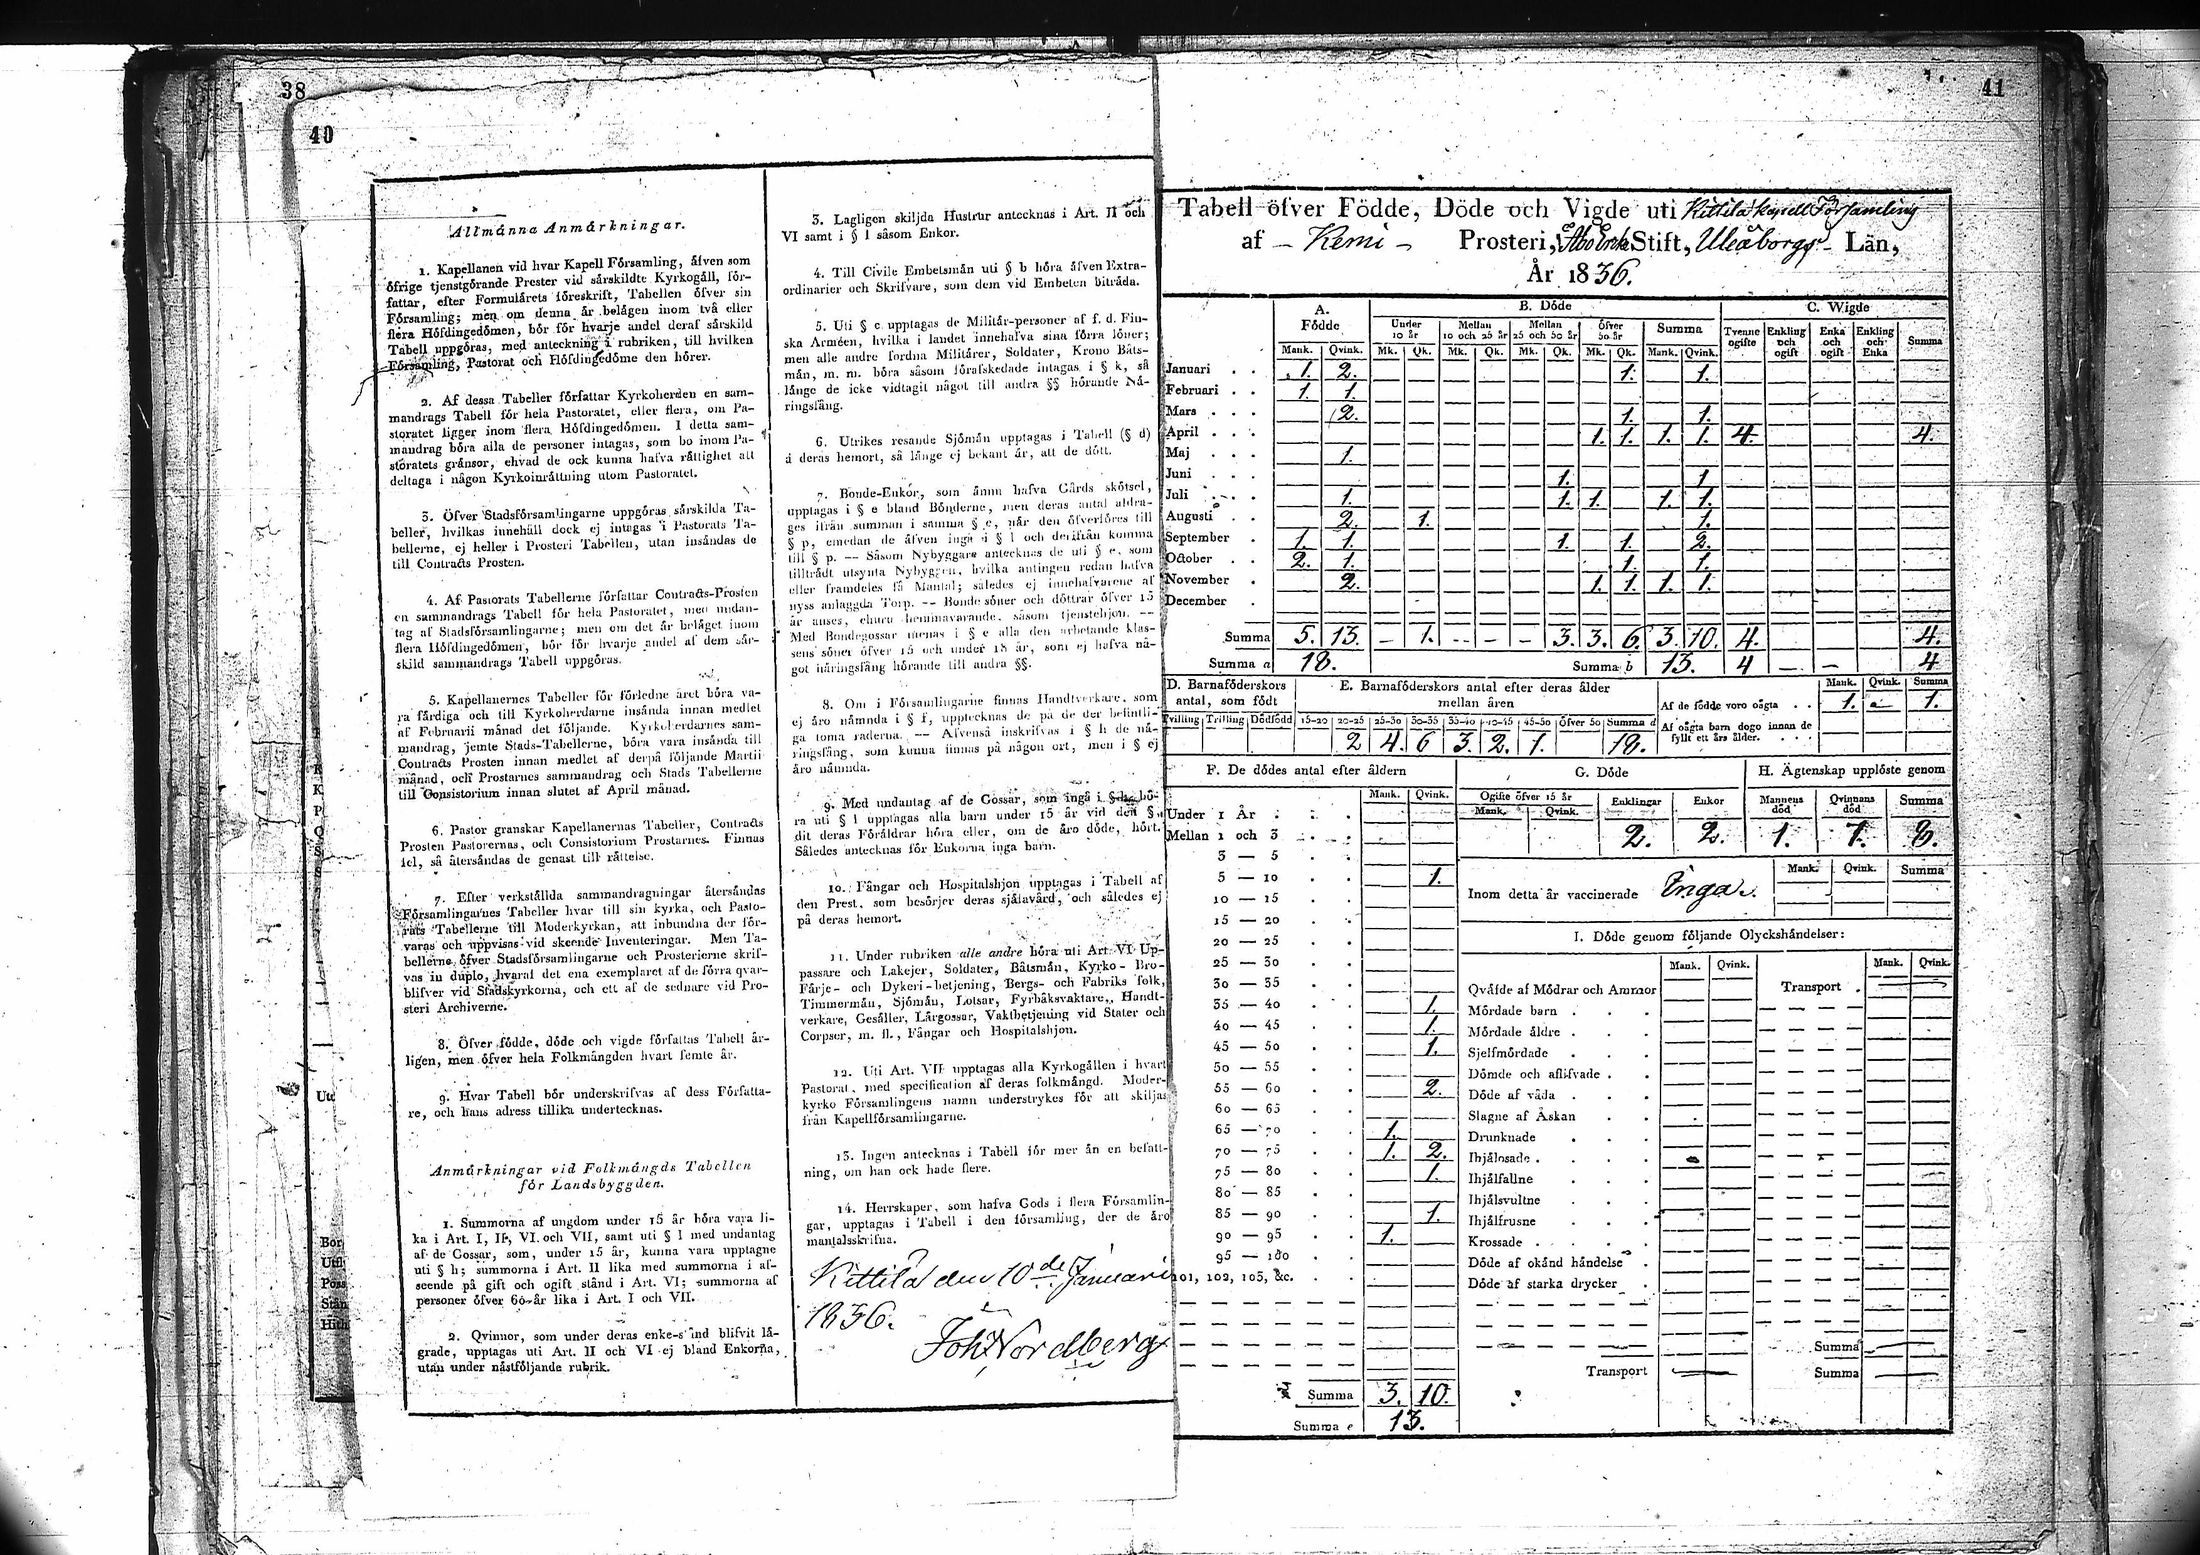 38
40
Allmänna Anmärkningar.
1. Kapellanen vid hvar Kapell Församling, äfven som
öfrige tjenstgörande Prester vid särskildte Kyrkogäll, för-
fattar, efter Formulärets föreskrift, Tabellen öfver sin
Församling; men om denna är belägen inom två eller
flera Höfdingedömen, bör för hvarje andel deraf särskild
Tabell uppgöras, med anteckning i rubriken, till hvilken
Församling, Pastorat och Höfdingedöme den hörer.
2. Af dessa Tabeller författar Kyrkoherden en sam-
mandrags Tabell för hela Pastoratet, eller flera, om Pa-
storatet ligger inom flera Höfdingedömen. I detta sam-
mandrag böra alla de personer intagas, som bo inom Pa-
storatets gränsor, ehvad de ock kunna hafva rättighet att
deltaga i någon Kyrkoinrättning utom Pastoratet.
3. Öfver Stadsförsamlingarne uppgöras särskilda Ta-
beller, hvilkas innehåll dock ej intagas i Pastorats Ta-
bellerne, ej heller i Prosteri Tabellen, utan insändas de
till Contracts Prosten.
4. Af Pastorats Tabellerne författar Contracts-Prosten
en sammandrags Tabell för hela Pastoratet, med undan-
tag af Stadsförsamlingarne; men om det är beläget inom
flera Höfdingedömen, bör för hvarje andel af dem sär-
skild sammandrags Tabell uppgöras.
5. Kapellanernes Tabeller för förledne året böra va-
ra färdiga och till Kyrkoherdarne insända innan medlet
af Februarii månad det följande. Kyrkoherdarnes sam-
mandrag, jemte Stads-Tabellerne, böra vara insända till
Contracts Prosten innan medlet af derpå följande Martii
månad, och Prostarnes sammandrag och Stads Tabellerne
till Consistorium innan slutet af April månad.
6. Pastor granskar Kapellanernas Tabeller, Contracts
Prosten Pastorernas, och Consistorium Prostarnes. Finnas
fel, så återsändas de genast till rättelse.
7. Efter verkställda sammandragningar återsändas
Församlingarnes Tabeller hvar till sin kyrka, och Pasto-
rats Tabellerne till Moderkyrkan, att inbundna der för-
varas och uppvisas vid skeende Inventeringar. Men Ta-
bellerne öfver Stadsförsamlingarne och Prosterierne skrif-
vas in duplo, hvaraf det ena exemplaret af de förra qvar-
blifver vid Stadskyrkorna, och ett af de sednare vid Pro-
steri Archiverne.
8. Öfver födde, döde och vigde författas Tabell år-
ligen, men öfver hela Folkmängden hvart femte år.
9. Hvar Tabell bör underskrifvas af dess Författa-
re, och hans adress tillika undertecknas.
Anmärkningar vid Folkmängds Tabellen
för Landsbyggden.
1. Summorna af ungdom under 15 år böra vara li-
ka i Art. I, II, VI och VII, samt uti § l med undantag
af de Gossar, som, under 15 år, kunna vara upptagne
uti § h; summorna i Art. II lika med summorna i af-
seende på gift och ogift stånd i Art. VI; summorna af
personer öfver 60 år lika i Art. I och VII.
2. Qvinnor, som under deras enke-stånd blifvit lä-
grade, upptagas uti Art. II och VI ej bland Enkorna,
utan under nästföljande rubrik.
3. Lagligen skiljda Hustrur antecknas i Art. II och
VI samt i § l såsom Enkor.
4. Till Civile Embetsmän uti § b höra äfven Extra-
ordinarier och Skrifvare, som dem vid Embeten biträda.
5. Uti § c upptagas de Militär-personer af f. d. Fin-
ska Arméen, hvilka i landet innehafva sina förra löner;
men alle andre fordna Militärer, Soldater, Krono Båts-
män, m. m. böra såsom förafskedade intagas i § k, så
länge de icke vidtagit något till andra §§ hörande Nä-
ringsfång.
6. Utrikes resande Sjömän upptagas i Tabell (§ d)
å deras hemort, så länge ej bekant är, att de dött.
7. Bonde-Enkor, som ännu hafva Gårds skötsel,
upptagas i § e bland Bönderne, men deras antal afdra-
ges ifrån summan i samma § e, når den öfverföres till
§ p, emedan de äfven ingå i § l och derifrån komma
till § p. — Såsom Nybyggare antecknas de uti § e, som
tillträdt utsynta Nybyggen, hvilka antingen redan hafva
eller framdeles få Mantal; således ej innehafvarene af
nyss anlaggda Torp. — Bonde söner och döttrar öfver 15
år anses, ehuru hemmavarande, såsom tjenstehjon. —
Med Bondegossar menas i § e alla den arbetande klas-
sens söner öfver 15 och under 18 år, som ej hafva nå-
got näringsfång hörande till andra §§.
8. Om i Församlingarne finnas Handtverkare, som
ej äro nämnda i § f, upptecknas de på de der befintli-
ga toma raderna. — Älvenså inskrifvas i § h de nä-
ringsfång, som kunna finnas på någon ort, men i § ej
äro nämnda.
9. Med undantag af de Gossar, som ingå i § h, bö-
ra uti § l upptagas alla barn under 15 år vid den §,
dit deras Föräldrar höra eller, om de äro döde, hört.
Således antecknas för Enkorna inga barn.
10. Fångar och Hospitalshjon upptagas i Tabell af
den Prest, som besörjer deras själavård, och således ej
på deras hemort.
11. Under rubriken alle andre höra uti Art. VI Up-
passare och Lakejer, Soldater, Båtsmän, Kyrko- Bro-
Färje- och Dykeri-betjening, Bergs- och Fabriks folk,
Timmermän, Sjömän, Lotsar, Fyrbåksvaktare, Handt-
verkare, Gesäller, Lärgossar, Vaktbetjening vid Stater och
Corpser, m. fl., Fångar och Hospitalshjon.
12. Uti Art. VII upptagas alla Kyrkogällen i hvart
Pastorat, med specification af deras folkmängd. Moder-
kyrko Församlingens namn understrykes för att skiljas
från Kapellförsamlingarne.
13. Ingen antecknas i Tabell för mer än en befatt-
ning, om han ock hade flere.
14. Herrskaper, som hafva Gods i flera Församlin-
gar, upptagas i Tabell i den församling, der de äro
mantalsskrifna.
Kittilä den 10de Januari
1836.
Joh. Nordberg
41
Tabell öfver Födde, Döde och Vigde uti Kittilä kapell Församling
af - Kemi - Prosteri, Åbo Erke Stift, Uleåborgs Län,
År 1836.
A. Födde B. Döde C. Wigde
Under 10 år Mellan 10 och 25 år Mellan 25 och 50 år Öfver 50 år Summa Tvenne ogifte Enkling och ogift Enka och ogift Enkling och Enka Summa
Mank. Qvink. Mk. Qk. Mk. Qk. Mk. Qk. Mk. Qk. Mank. Qvink.
Januari . . 1. 2. 1. 1.
Februari . . 1. 1.
Mars . . . 2. 1. 1.
April . . . 1. 1. 1. 1. 4. 4.
Maj . . . 1.
Juni . . . 1. 1
Juli . . . 1. 1. 1. 1. 1.
Augusti . . 2. 1. 1.
September . 1. 1. 1. 1. 2.
October . . 2. 1. 1. 1.
November . 2. 1. 1. 1. 1.
December .
Summa 5. 13. - 1. - - - 3. 3. 6. 3. 10. 4. 4.
Summa a 18. Summa b 13. 4 - - 4
D. Barnaföderskors antal, som födt
Tvilling Trilling Dödfödd
E. Barnaföderskors antal efter deras ålder mellan åren
15-20 20-25 25-30 30-35 35-40 40-45 45-50 Öfver 50 Summa d
2 4. 6 3. 2. 1. 18.
Mank. Qvink. Summa
Af de födde voro oägta . . 1. - 1.
Af oägta barn dogo innan de
fyllt ett års ålder. . . .
F. De dödes antal efter åldern
Mank. Qvink.
Under 1 År . . .
Mellan 1 och 3 . . .
3 — 5 . .
5 — 10 . . 1.
10 — 15 . .
15 — 20 . .
20 — 25 . .
25 — 30 . .
30 — 35 . .
35 — 40 . . 1.
40 — 45 . . 1.
45 — 50 . . 1.
50 — 55 . .
55 — 60 . . 2.
60 — 65 . .
65 — 70 . . 1.
70 — 75 . . 1. 2.
75 — 80 . . 1.
80 — 85 . .
85 — 90 . . 1.
90 — 95 . . 1.
95 — 100 . .
101, 102, 103, &c. . .
Summa 3. 10.
Summa e 13.
G. Döde
Ogifte öfver 15 år Enklingar Enkor
Mank. Qvink.
2. 2.
H. Ägtenskap upplöste genom
Mannens död Qvinnans död Summa
1. 7. 8.
Mank. Qvink. Summa
Inom detta år vaccinerade Inga.
I. Döde genom följande Olyckshändelser:
Mank. Qvink. Mank. Qvink.
Qväfde af Mödrar och Ammor Transport .
Mördade barn . . .
Mördade äldre . . .
Sjelfmördade . . .
Dömde och aflifvade . .
Döde af våda . . .
Slagne af Åskan . .
Drunknade . . .
Ihjälosade . . . .
Ihjälfallne . . .
Ihjälsvultne . . .
Ihjälfrusne . . .
Krossade . . . .
Döde af okänd händelse .
Döde af starka drycker .
Summa
Transport Summa